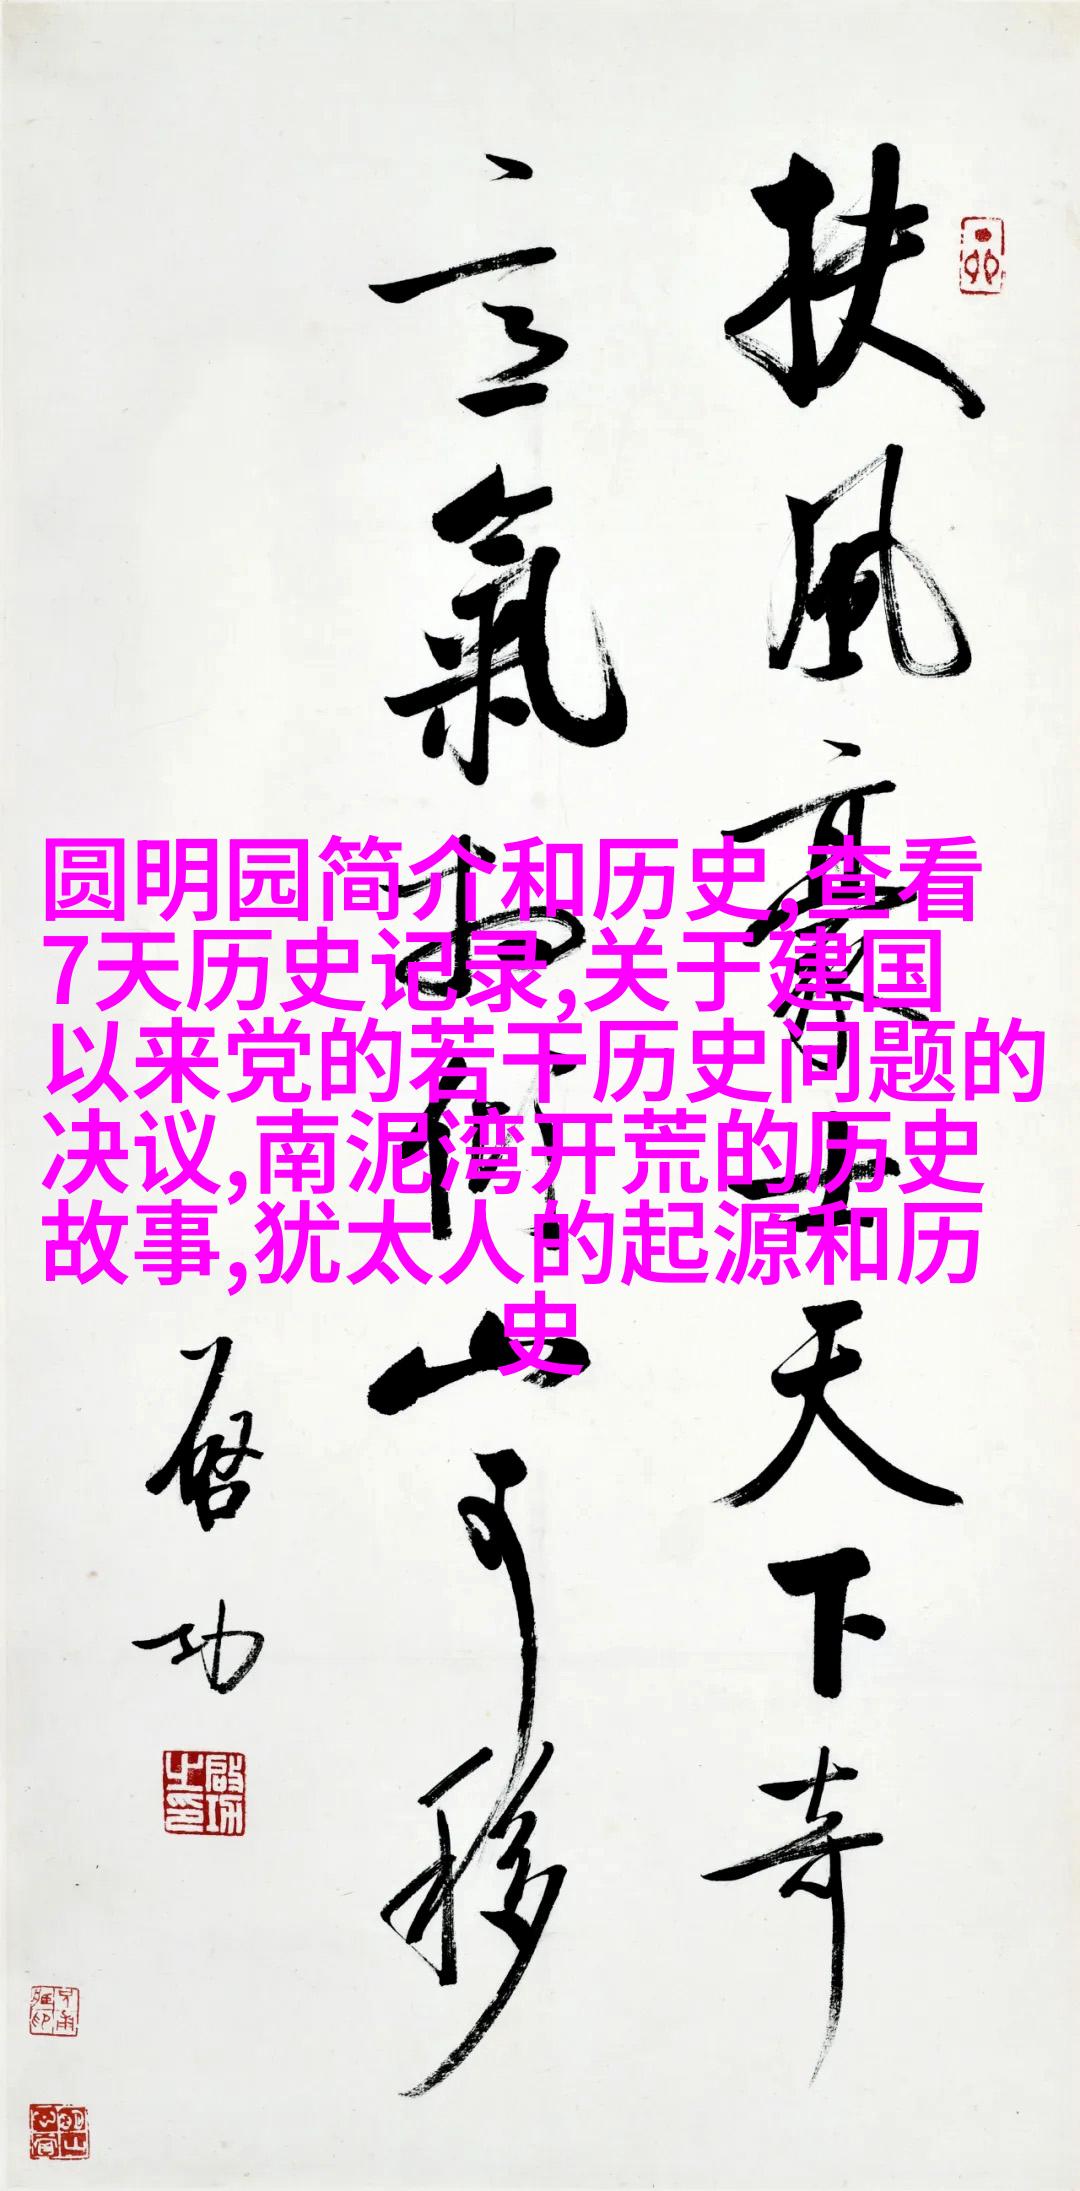 扶風豪士天下奇
意氣相傾山可移
啓功
啟功之印
圆明园简介和历史,查看
7天历史记录,关于建国
以来党的若干历史问题的
决议,南泥湾开荒的历史
故事,犹太人的起源和历
史